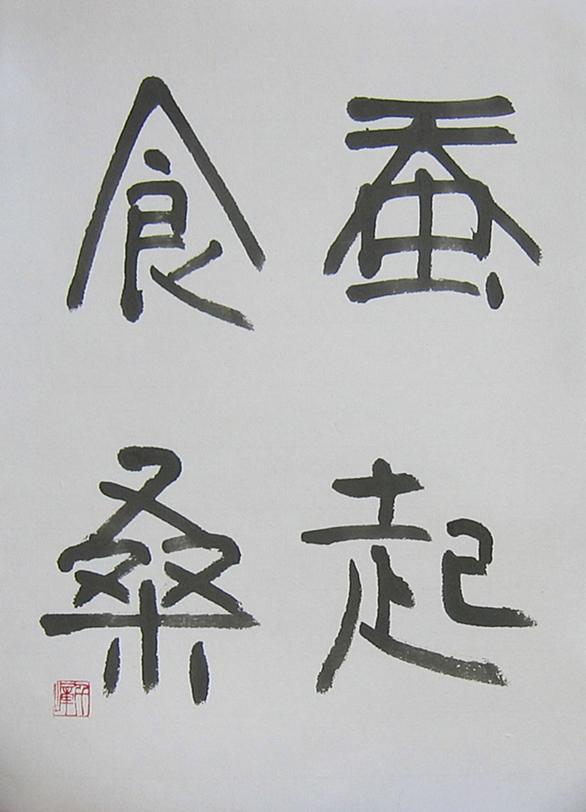 蚕起
食桑